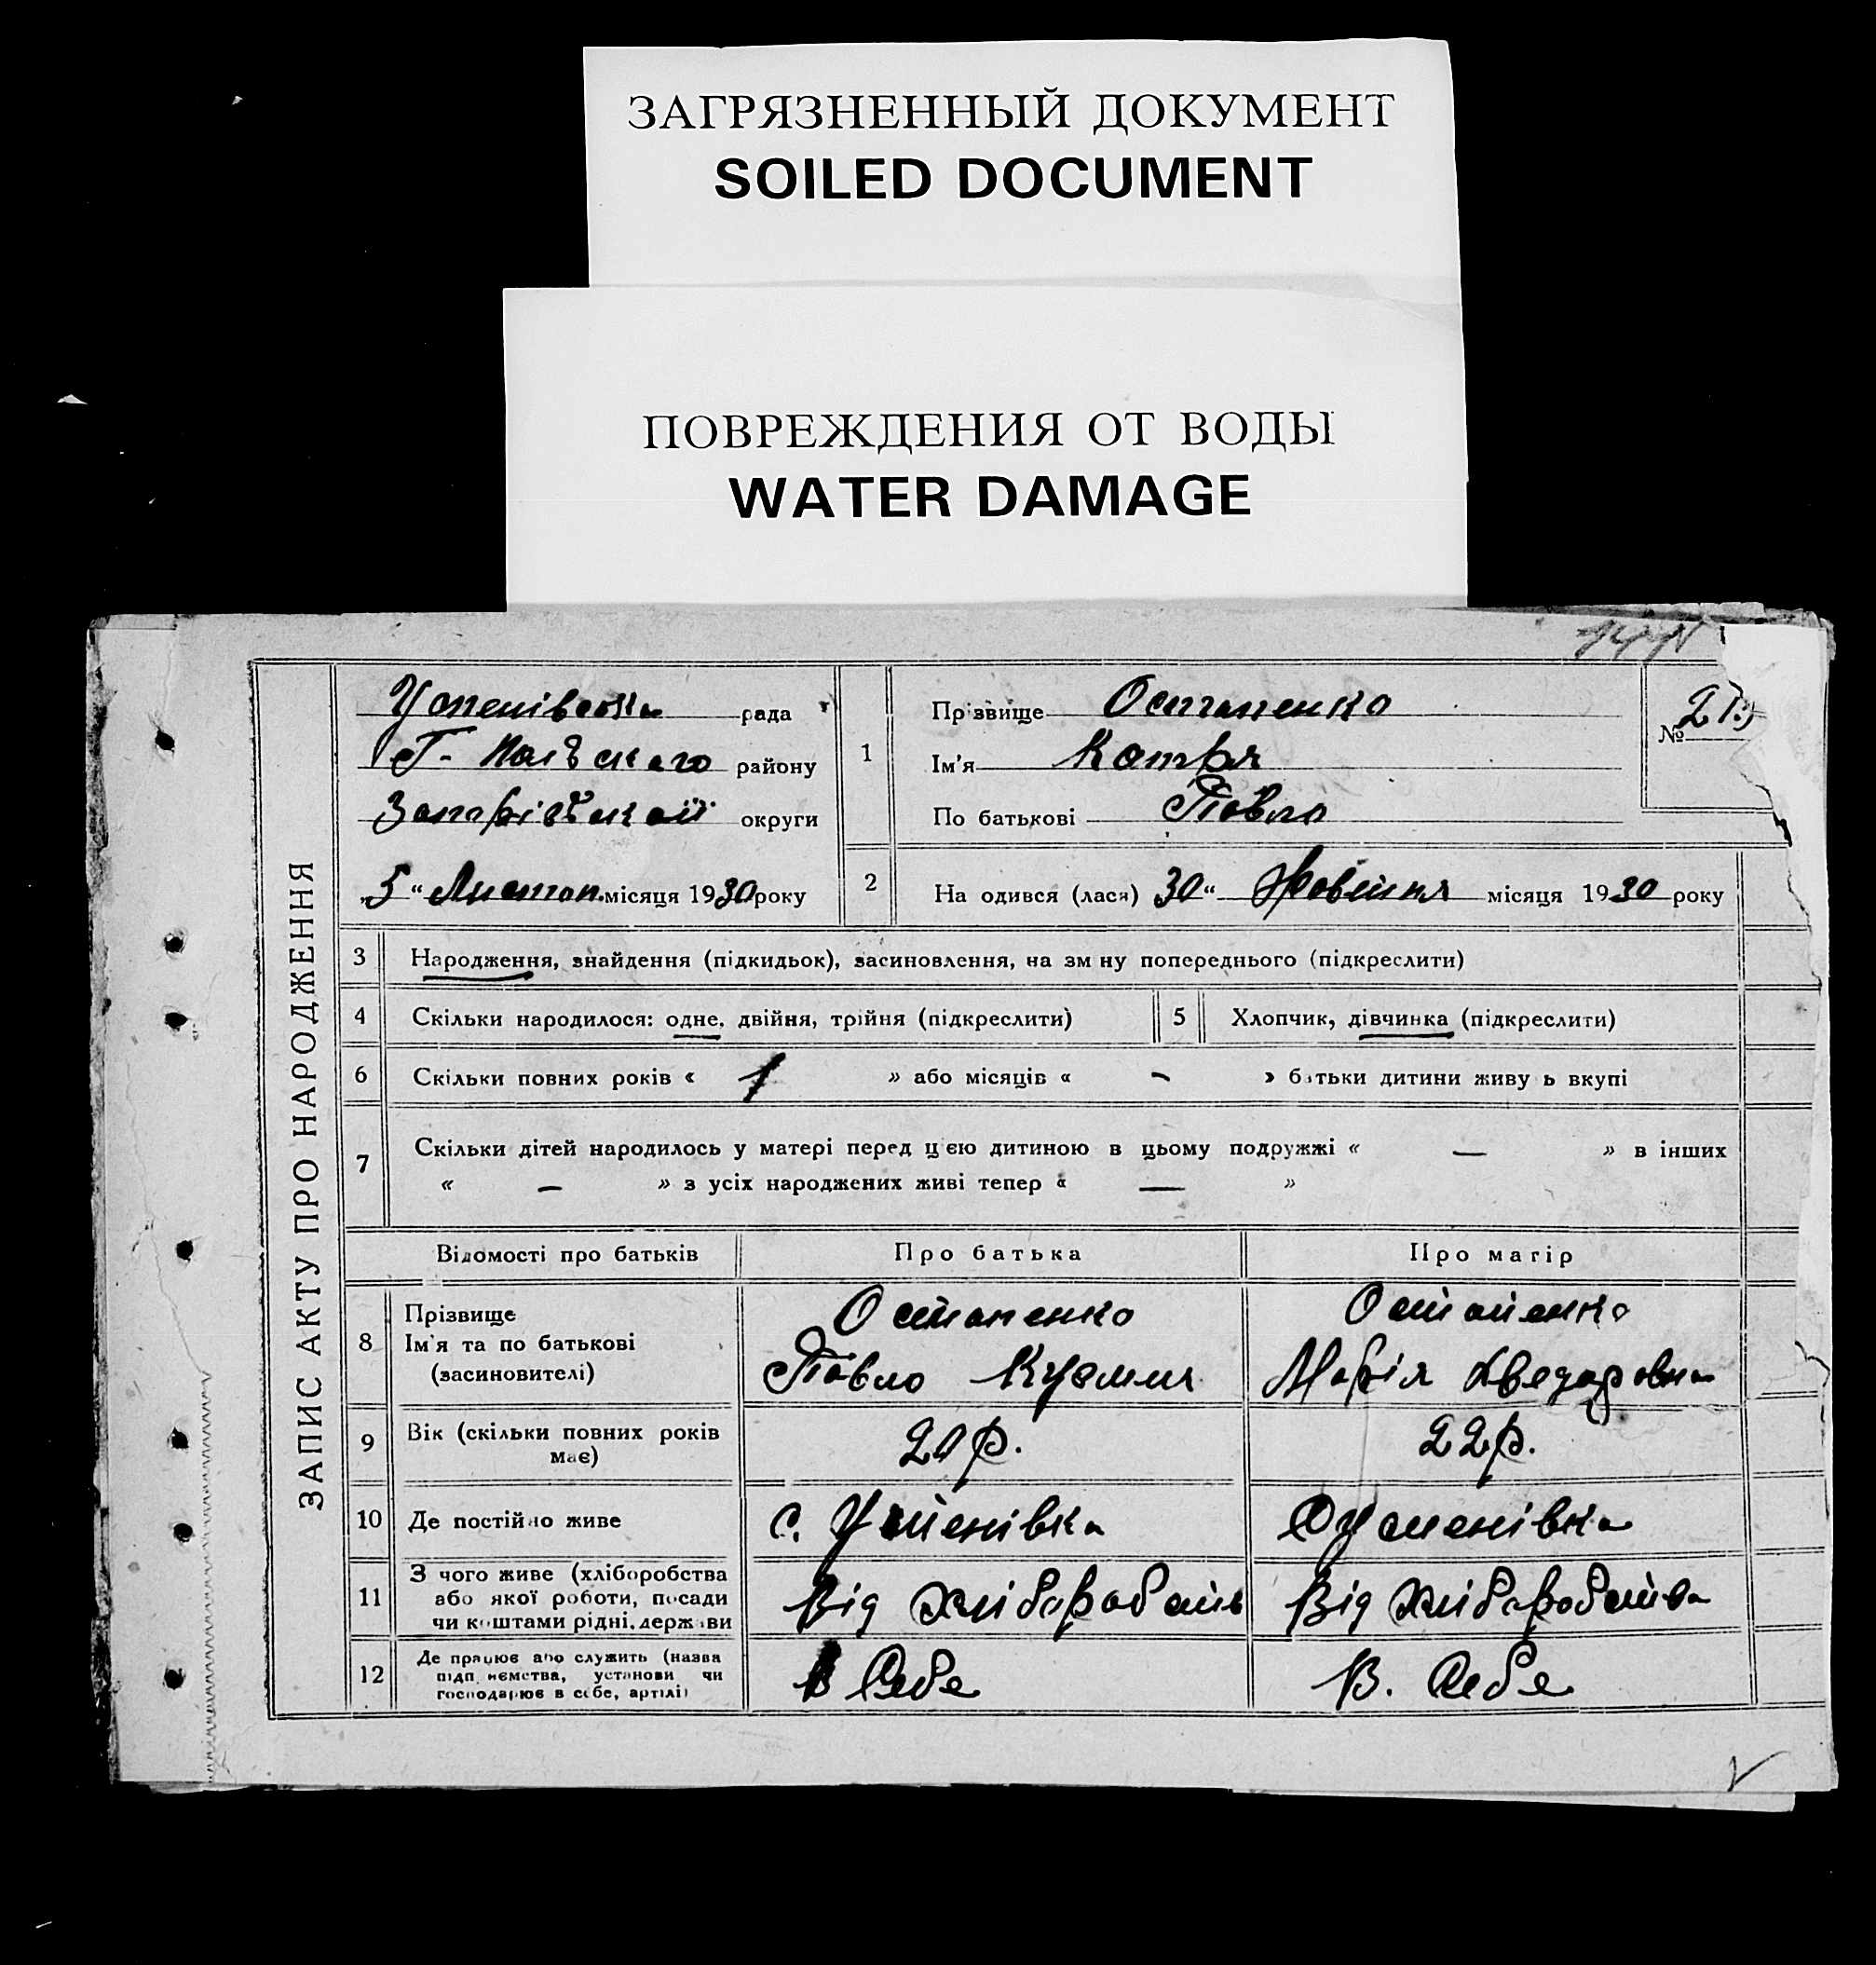 ЗАГРЯЗНЕННЫЙ ДОКУМЕНТ
SOILED DOCUMENT
ПОВРЕЖДЕНИЯ ОТ ВОДЫ
WATER DAMAGE
ЗАПИС АКТУ ПРО НАРОДЖЕННЯ
Успенівська рада
Г- Пільського району
округи
„5“ Листоп. місяця 1930 року
1
Прізвище Остапенко
Ім'я Катря
По батькові Павло
№
2
На одився (лася) 30“ Жовтня місяця 1930 року
3 Народження, знайдення (підкидьок), засиновлення, на зм ну попереднього (підкреслити)
4 Скільки народилося: одне, двійня, трійня (підкреслити)
5 Хлопчик, дівчинка (підкреслити)
6 Скільки повних років « 1 » або місяців « - » батьки дитини живу ь вкупі
7 Скільки дітей народилось у матері перед цією дитиною в цьому подружжі « — » в інших
« — » з усіх народжених живі тепер « — »
Відомості про батьків Про батька Про матір
8 Прізвище
Ім'я та по батькові
(засиновителі)
Остапенко
Павло Кузмич
Остапенко
Марія Хведоровна
9 Вік (скільки повних років
має)
20 р.
22 р.
10 Де постійно живе
с. Успенівка
с Успенівка
11 З чого живе (хліборобства
або якої роботи, посади
чи коштами рідні, держави
Від хліборобств
Від хліборобства
12 Де працює або служить (назва
підп иємства, установи чи
господарює в себе, артілі)
В себе
В. себе